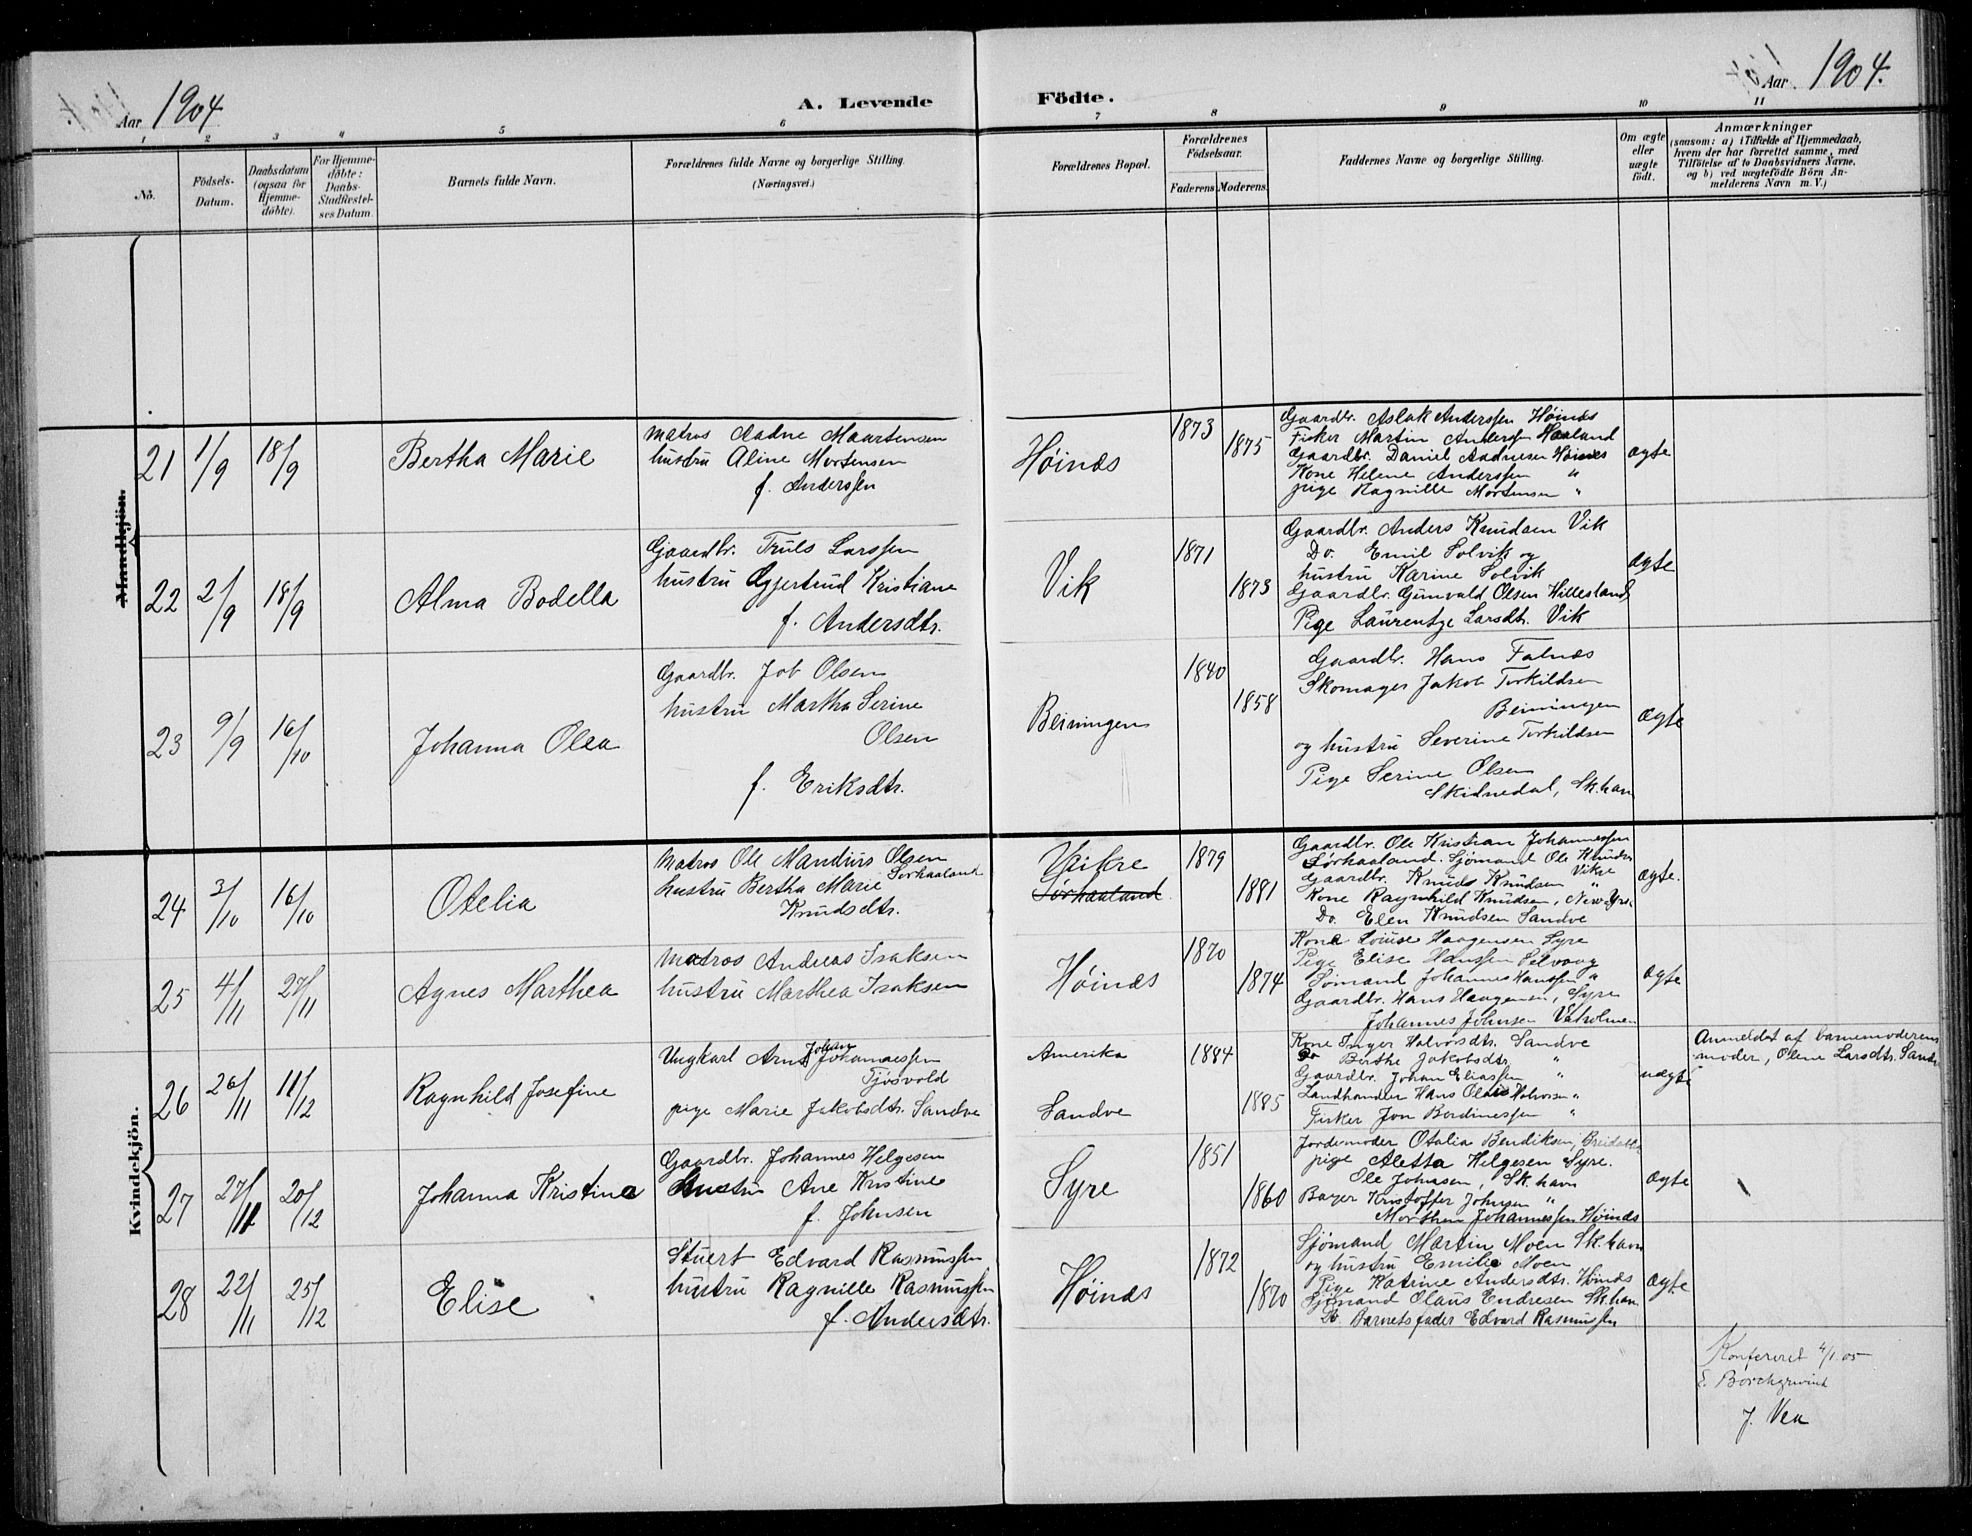 Aar 1904
A. Levende
Födte.
Aar 1904.
1 2 3 4 5 6 7 8 9 10 11
No.
Födsels-
Datum.
Daabsdatum
(ogsaa for
Hjemme-
döbte).
For Hjemme-
döbte:
Daabs-
Stadfæstel-
ses Datum.
Barnets fulde Navn.
Forældrenes fulde Navne og borgerlige Stilling.
(Næringsvei.)
Forældrenes Bopæl.
Forældrenes
Födselsaar.
Faderens Moderens.
Faddernes Navne og borgerlige Stilling.
Om ægte
eller
uægte
födt.
Anmærkninger
(saasom: a) i Tilfælde af Hjemmedaab,
hvem der har forrettet samme, med
Tilföielse af to Daabsvidners Navne,
og b) ved uægtefödte Börn An-
melderens Navn m. V.)
Mandkjön.
21 1/9 18/9
Bertha Marie
Matros Aadne Maartensen
hustru Aline Mortensen
f. Anderssen
Höinæs
1873
1875
Gaardbr. Aslak Anderssen Höinæs
Fisker Martin Anderssen Haaland
Gaardbr. Daniel Aadnesen Höinæs
Kone Helene Anderssen "
pige Ragnille Mortensen "
ægte
22 2/9 18/9
Alma Bodella
Gaardbr. Truls Larssen
hustru Eggertrud Kristiane
f. Andersdtr.
Vik
1871
1873
Gaardbr. Anders Knudsen Vik
Do. Emil Solvik og
hustru Karine Solvik
Gaardbr. Gunvald Olsen Hillesland
Pige Laurentze Larsdtr. Vik
ægte
23 9/9 16/10
Johanna Olea
Gaardbr. Job Olsen
hustru Martha Serine
Olsen
f. Eriksdtr.
Beiningen
1840
1858
Gaardbr. Hans Falnæs
Skomager Jakob Torkildsen
Beiningen
og hustru Severine Torkildsen
Pige Serine Olsen
Skidnedal, Sk.havn
ægte
Kvindekjön.
24 3/10 16/10
Otelia
Matros Ole Mandius Olsen
Sörhaaland
hustru Bertha Marie
Knudsdtr.
Vikre
Sörhaaland
1879
1881
Gaardbr. Ole Kristian Johannessen
Sörhaaland. Sjömand Ole Knudsen
Gaardbr. Knud Knudsen Vikre
Kone Ragnhild Knudsen,
Do. Elen Knudsen Sandve
ægte.
25 4/11 27/11
Agnes Marthea
Matros Andreas Isaksen
hustru Marthea Isaksen
Höinæs
1870
1874
Kone Louise Haagensen Syre
Pige Elise Hanssen Selvaag
Sömand Johannes Hanssen "
Gaardbr. Hans Haagensen, Syre
Johannes Johnsen Vaholmen
ægte
26 26/11 11/12
Ragnhild Josefine
Ungkarl Arne Johan Johannessen
Tjösvold
pige Marie Jakobsdtr. Sandve
Amerika
Sandve
1884
1885
Kone Inger Halvorsdtr. Sandve
Do Berthe Jakobsdtr. "
Gaardbr. Johan Eliassen "
Landhandler Hans Olaus Halvorsen "
Fisker Jon Berdinessen "
uægte
Anmeldat af barnemoderens
moder, Olene Larsdtr. Sandve
27 27/11 20/12
Johanna Kristine
Gaardbr. Johannes Helgesen
Hustru Ane Kristine
f. Johnsen
Syre
1851
1860
Jordemoder Otalia Bendiksen,
pige Aletta Helgesen Syre.
Ole Johnsen, Sk.havn
Bager Kristoffer Johnsen "
Morthen Johannessen Höinæs
ægte
28 22/11 25/12
Elise
Stuert Edvard Rasmussen
hustru Ragnille Rasmussen
f. Andersdtr.
Höinæs
1872
1870
Sjömand Martin Moen Sk.havn
og hustru Emilie Moen
Pige Katrine Andersdtr. Höinæs
Sjömand Olaus Endresen Sk.havn
Do. Barnets fader Edvard Rasmussen
ægte
Konfereret 4/1 05
E. Borchgrevink
J. Vea